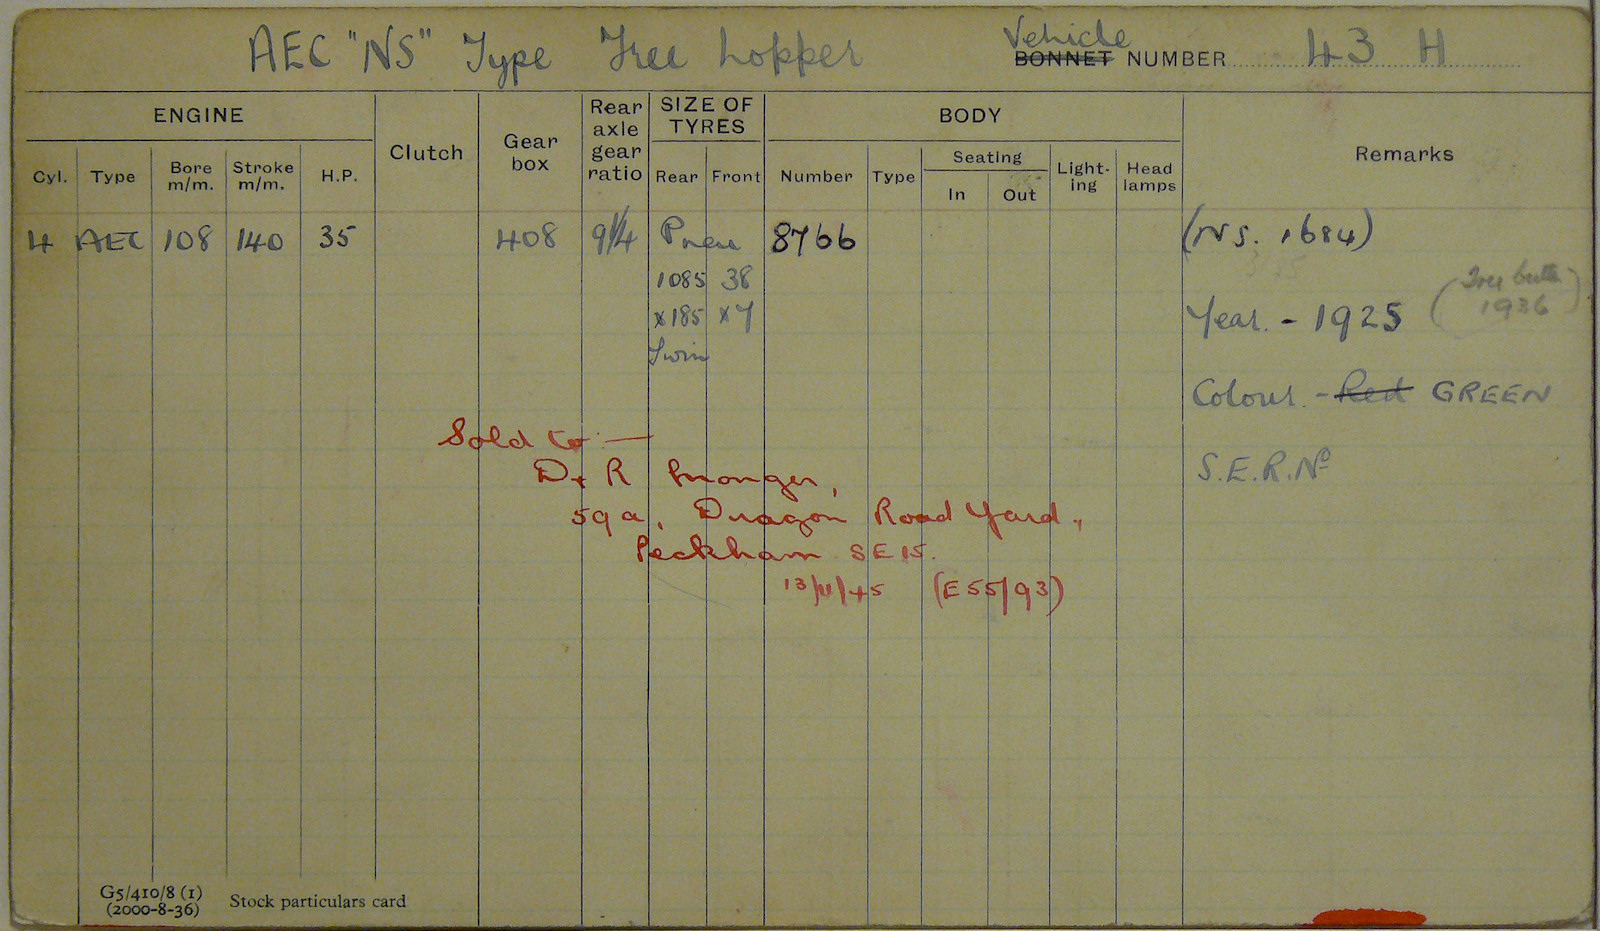 AEC "NS" Type Tree Lopper
Vehicle
BONNET NUMBER 43 H
ENGINE
Clutch
Gear box
Rear axle gear ratio
SIZE OF TYRES
BODY
Remarks
Cyl. Type Bore m/m. Stroke m/m. H.P.
Rear Front
Number Type
Seating
In Out
Light-ing
Head lamps
4 AEC 108 140 35 408 9 1/4 Pneu 8766 (NS. 1684)
1085 38
x185 x7
Twin
Year. - 1925 (Tree 1936)
Colour. - Red GREEN
S.E.R. Nº
Sold to —
D & R Monger,
59a, Dragon Road Yard,
Peckham SE 15.
13/11/45 (E55/93)
G5/410/8 (1)
(2000-8-36)
Stock particulars card